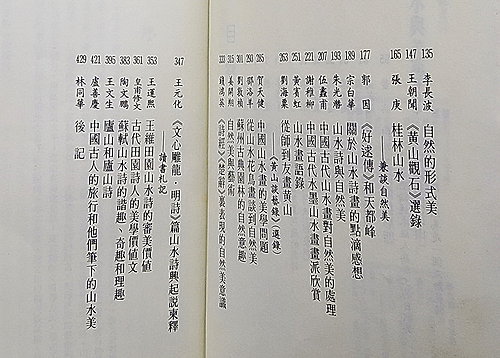 135 李長波 自然的形式美
147 王朝聞 《黃山觀石》選錄
——兼談自然美
165 張庚 桂林山水
177 郭因 《好逑傳》和天都峰
189 宗白華 關於山水詩畫的點滴感想
193 朱光潛 山水詩與自然美
207 伍蠡甫 中國古代山水畫對自然美的處理
221 謝稚柳 中國古代水墨山水畫畫派欣賞
251 黃賓虹 山水畫語錄
263 劉海粟 從師到友畫黃山
——《黃山談藝錄》(選錄)
285 賀天健 中國山水畫的美學問題
293 邵洛羊 從山水花鳥畫談到自然美
301 劉敦楨 蘇州古典園林的自然意趣
315 自然美與藝術
333 《詩經》《楚辭》裏表現的自然美意識
347 王元化 《文心雕龍·明詩》篇山水詩興起說柬釋
——讀書札記
353 王運熙 王維田園山水詩的審美價值
361 皇甫修文 古代田園詩人的美學價值文
383 陶文鵬 蘇軾山水詩的諧趣、奇趣和理趣
395 王文生 廬山和廬山詩
421 盧善慶 中國古人的旅行和他們筆下的山水美
429 林同華 後記